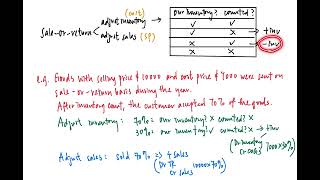 (cost) our inventory? counted?
sale-or-return adjust inventory ✓ ✓
adjust sales (SP) ✓ X → +inv
X ✓ → -inv
X X
e.g. Goods with selling price $10000 and cost price $7000 were sent on
sale-or-return basis during the year.
After inventory count, the customer accepted 70% of the goods.
Adjust inventory: 70% = our inventory? X counted? X
30% = our inventory? ✓ counted? X → +inv
(Dr Inventory 7000×30%
Cr COGS)
Adjust sales: sold 70% => + sales
(Dr TR 10000×70%
Cr Sales)